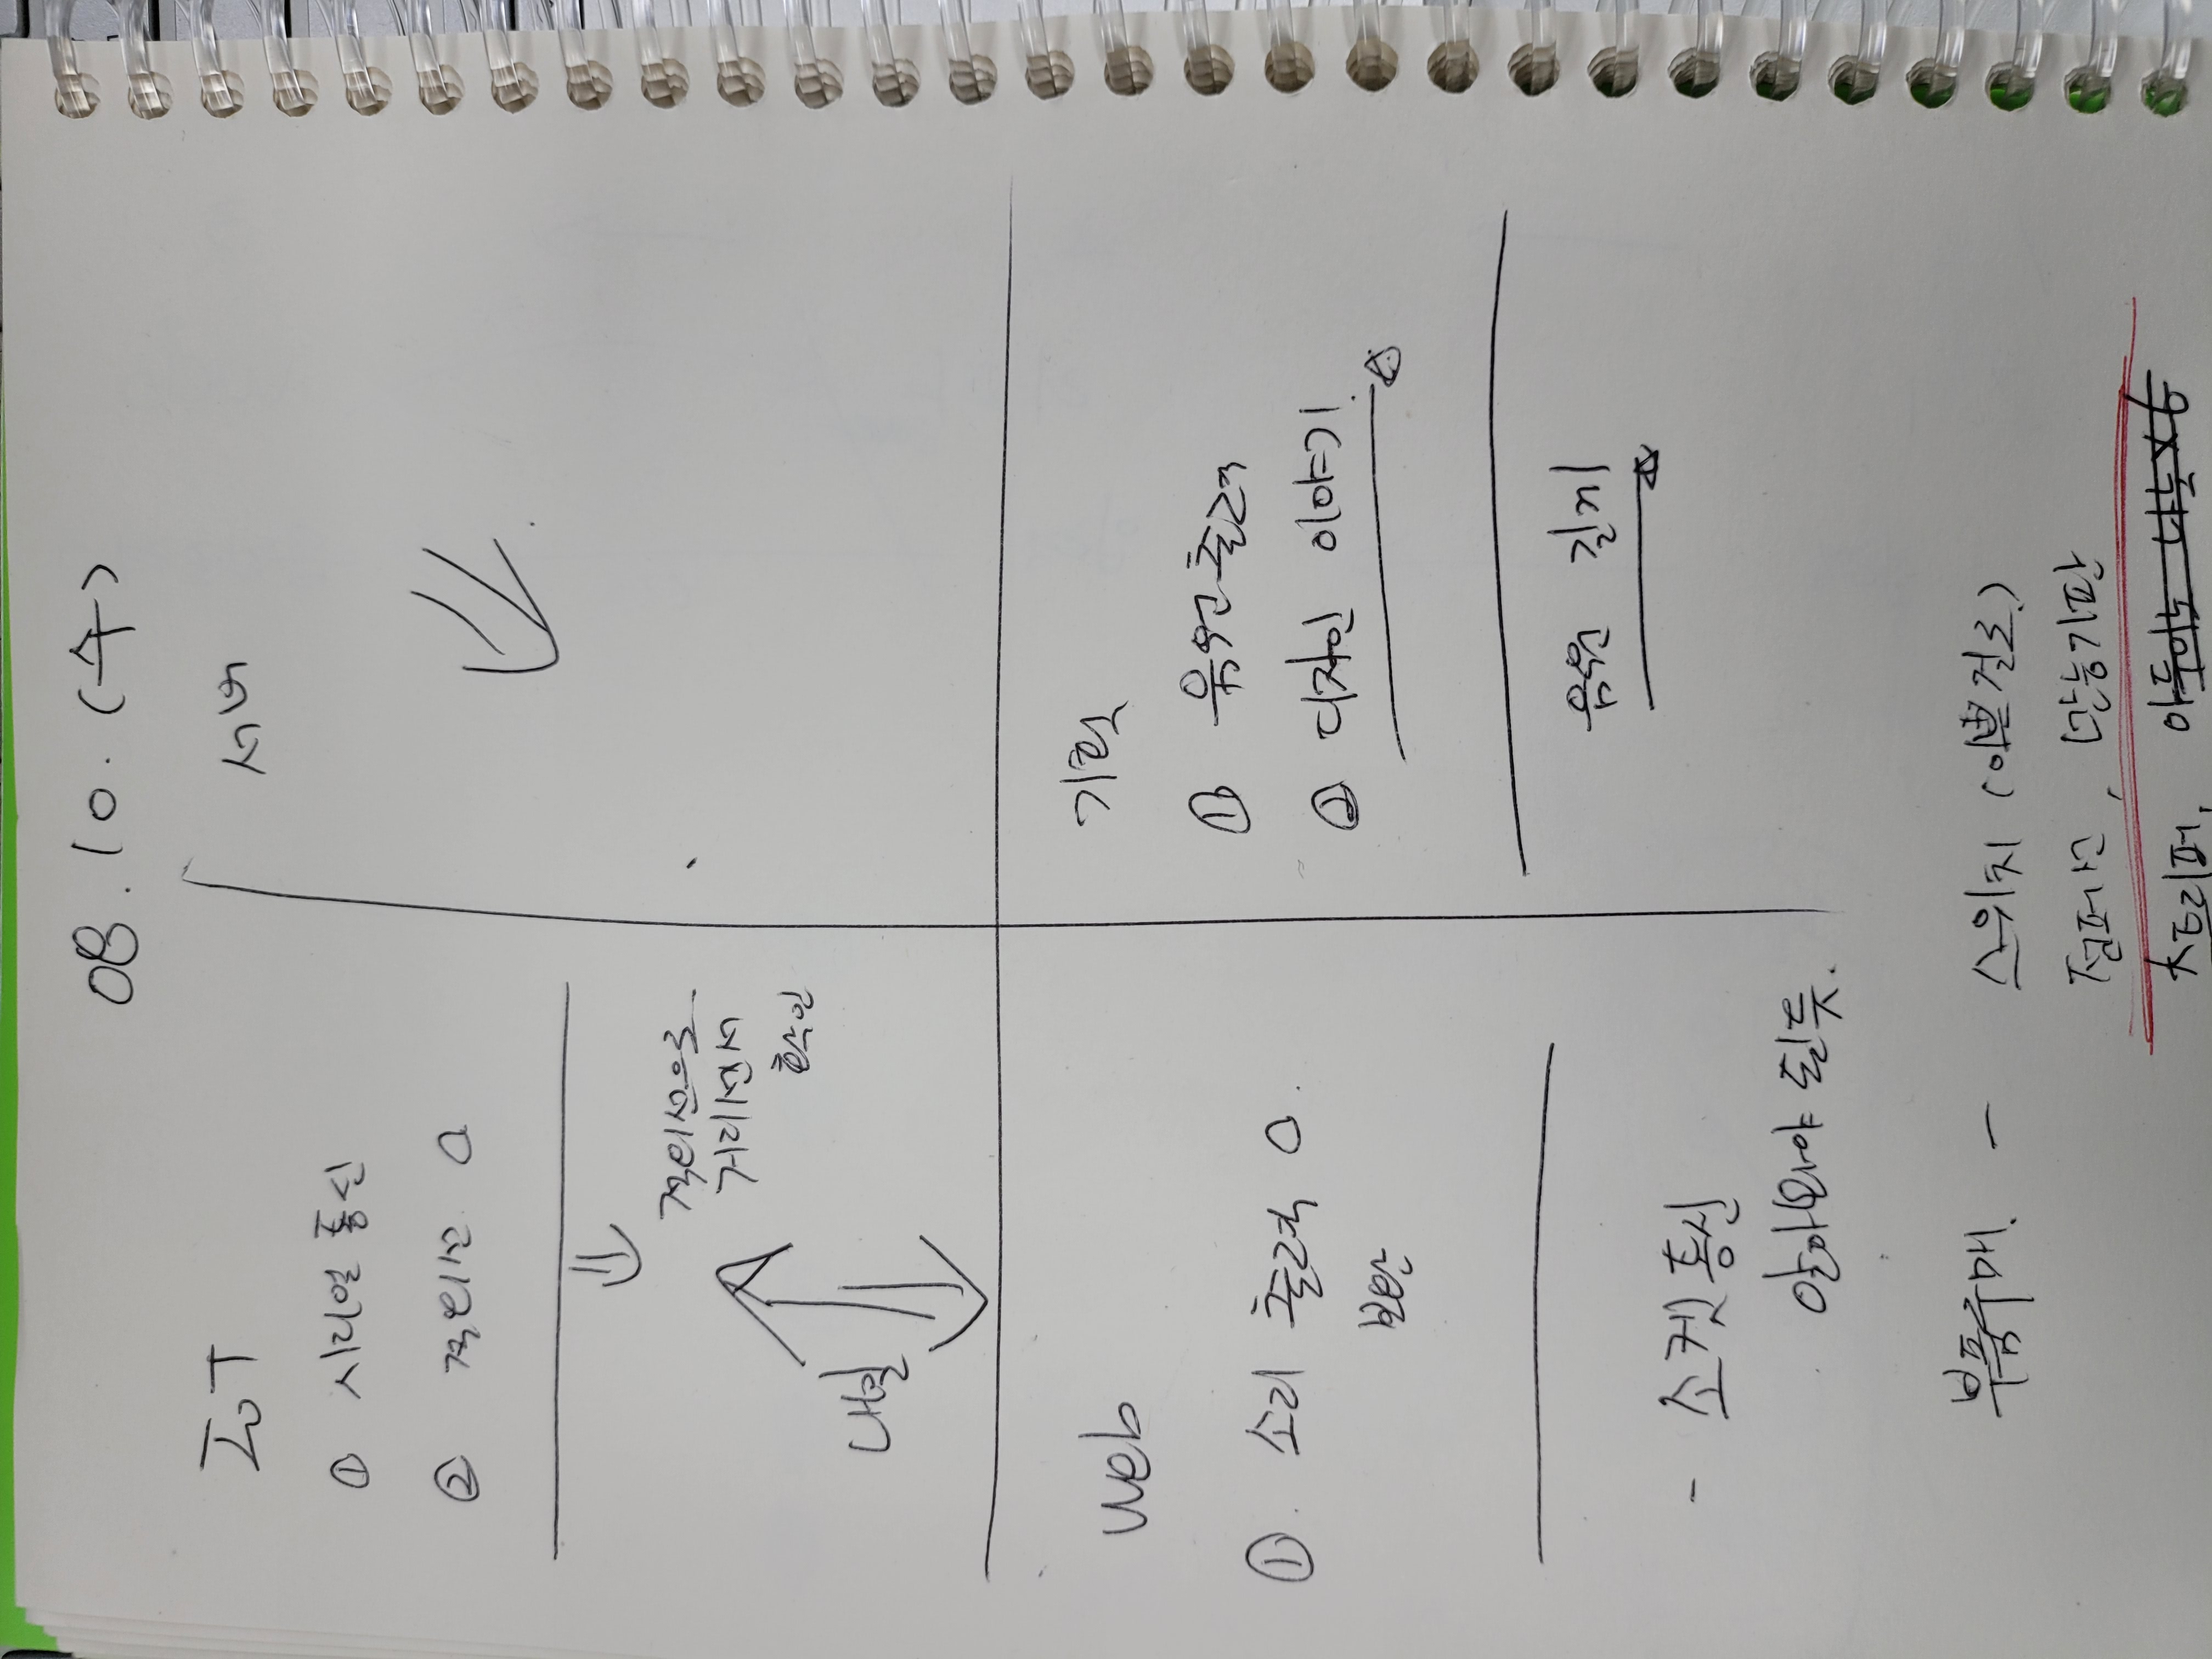 08.10.(수)
IoT
① 시리얼 통신
② 적외선 O
적외선으로
거리센서
확인
내일
서버
Web
①. 소리 출력 O.
보완
- 소켓통신
알아봐야 될듯.
기획
① 음원출력
② 디자인 이야기.
음원 길게
부품구매. - 스위치 (이쁜걸로.)
점퍼선, 만능기판
스트리퍼, 아두이노 나노x6